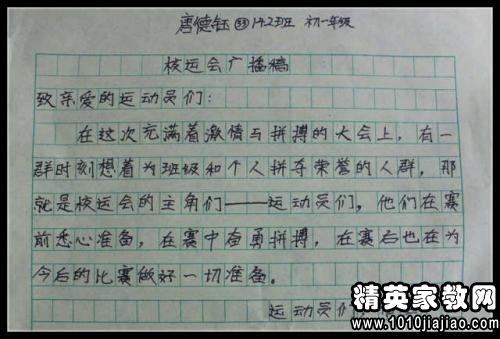 唐德钰 33 142班 初一年级
校运会广播稿
致亲爱的运动员们：
在这次充满着激情与拼搏的大会上，有一
群时刻想着为班级和个人拼夺荣誉的人群，那
就是校运会的主角们——运动员们，他们在赛
前悉心准备，在赛中奋勇拼搏，在赛后也在为
今后的比赛做好一切准备。
运动员们
精英家教网
www.1010jiajiao.com